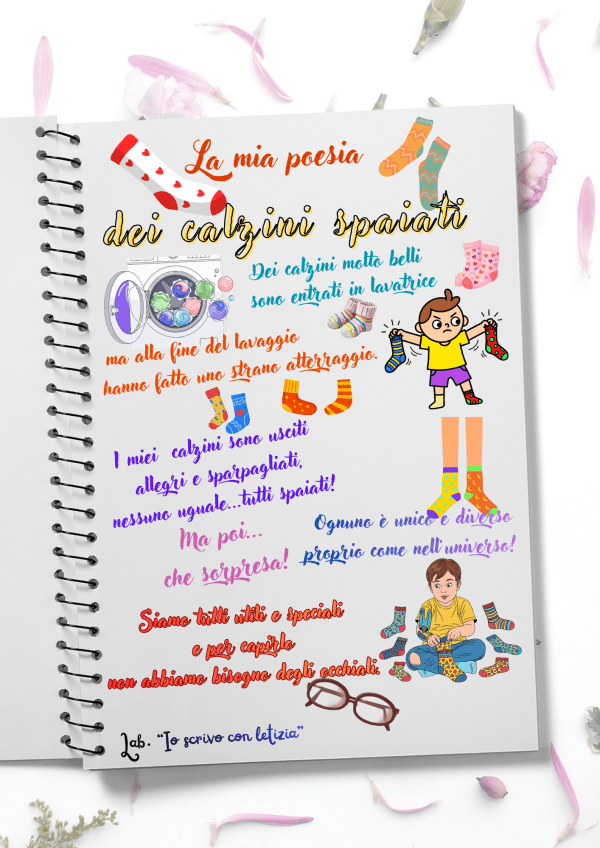 La mia poesia
dei calzini spaiati
Dei calzini molto belli
sono entrati in lavatrice
ma alla fine del lavaggio
hanno fatto uno strano atterraggio.
I miei calzini sono usciti
allegri e sparpagliati,
nessuno uguale...tutti spaiati!
Ma poi...
che sorpresa!
Ognuno è unico e diverso
proprio come nell'universo!
Siamo tutti utili e speciali
e per capirlo
non abbiamo bisogno degli occhiali.
Lab. "Io scrivo con letizia"